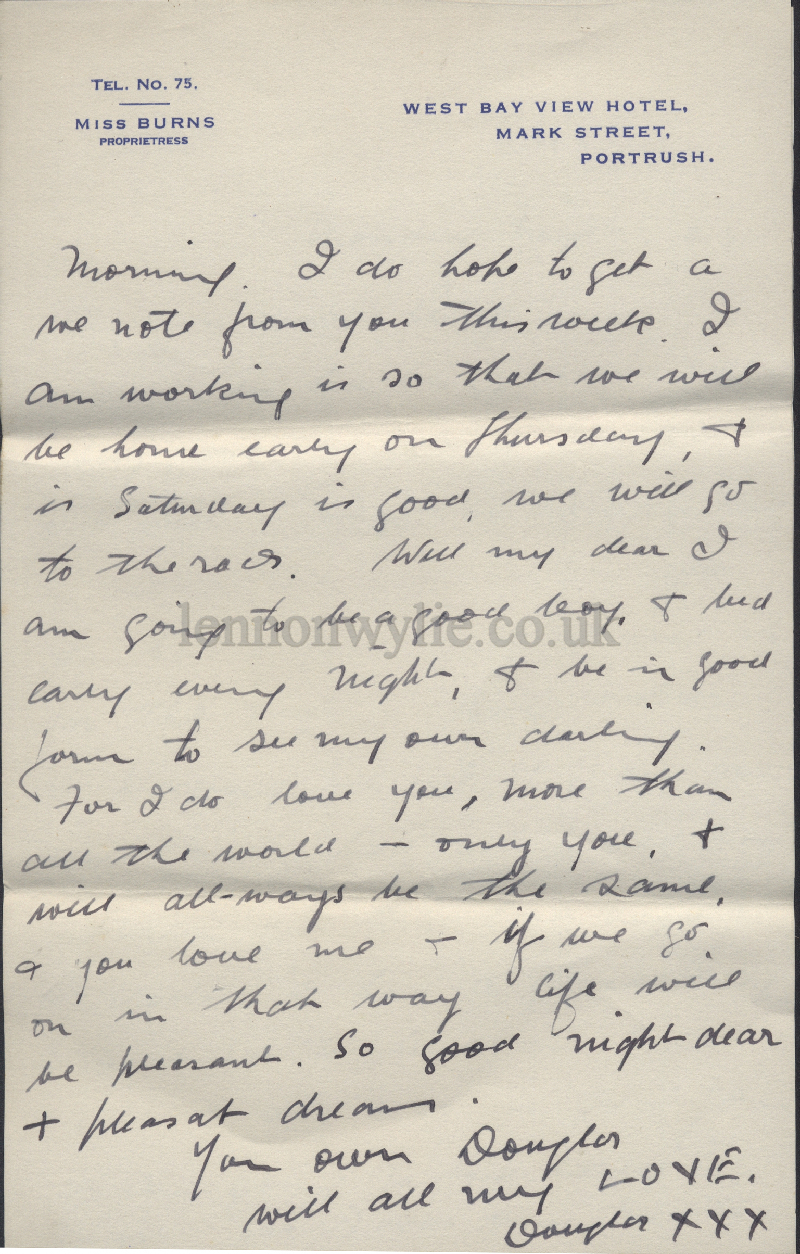 TEL. NO. 75.
MISS BURNS
PROPRIETRESS
WEST BAY VIEW HOTEL,
MARK STREET,
PORTRUSH.
Morning. I do hope to get a
we note from you this week. I
am working is so that we will
be home early on Thursday, +
is Saturday is good, we will go
to the races. Well my dear I
am going to be a good boy, + bed
early every night, + be in good
form to see my own darling.
For I do love you, more than
all the world – only you, +
will all-ways be the same,
+ you love me + if we go
on in that way life will
be pleasant. So good night dear
+ pleasat dreams.
Your own Douglas
will all my LOVE.
Douglas XXX
lennonwylie.co.uk